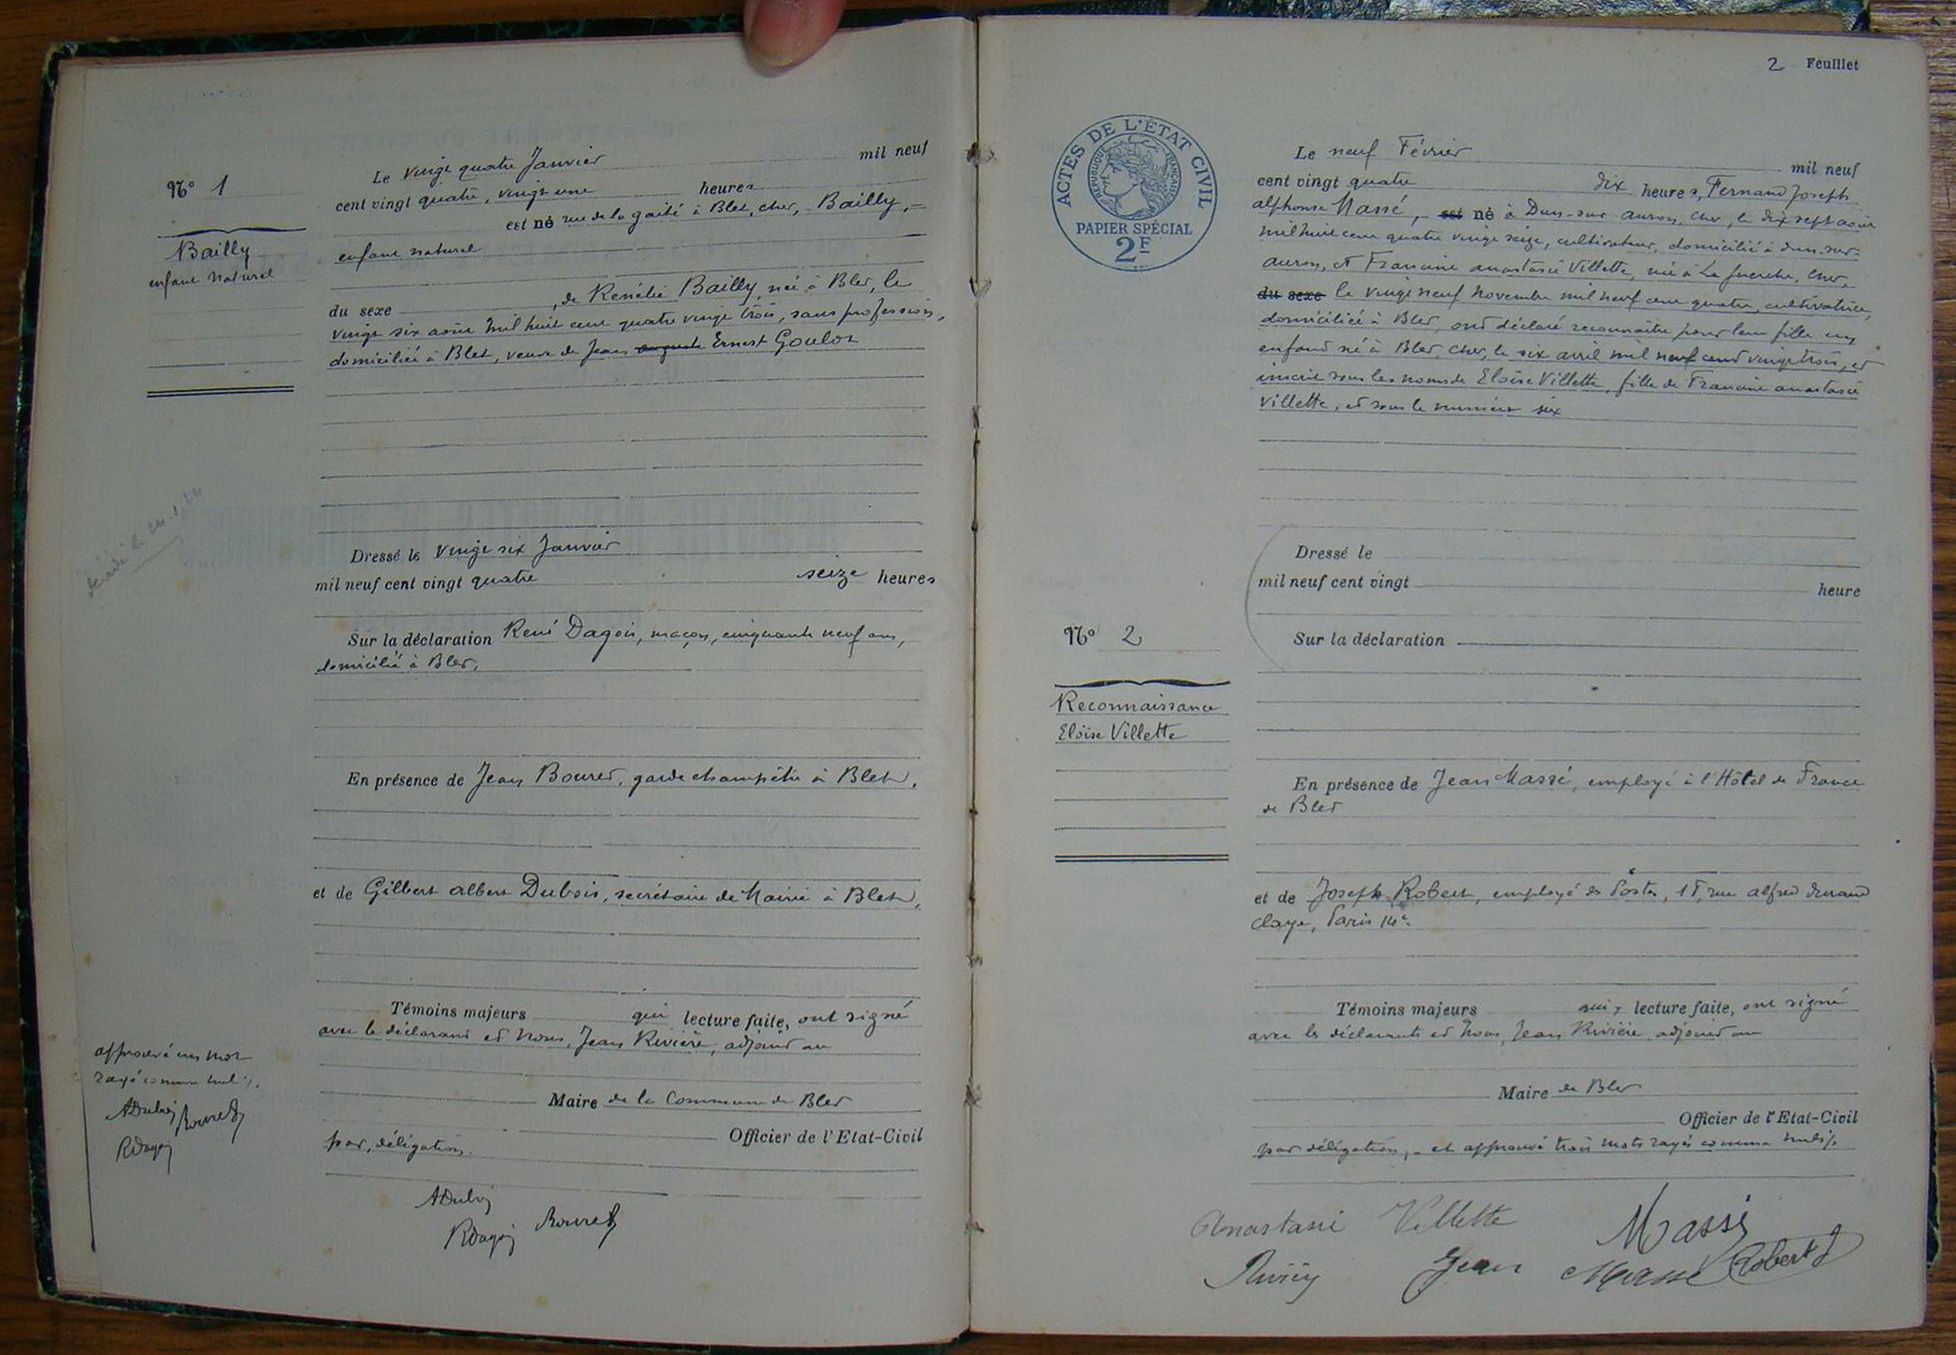 N° 1
Bailly
enfant naturel
Le vingt quatre Janvier mil neuf
cent vingt quatre, vingt une heures
est né rue de la gaité à Blet, cher, Bailly,
enfant naturel
du sexe , de Renélie Bailly, née à Blet, le
vingt six août mil huit cent quatre vingt trois, sans profession,
domiciliée à Blet, veuve de Jean auguste Ernest Goulot
Dressé le vingt six Janvier
mil neuf cent vingt quatre seize heures
Sur la déclaration René Dagois, maçon, cinquante neuf ans,
domicilié à Blet,
En présence de Jean Bouret, garde champêtre à Blet,
et de Gilbert albert Dubois, secrétaire de Mairie à Blet,
Témoins majeurs qui lecture faite, ont signé
avec le déclarant et Nous, Jean Rivière, adjoint au
Maire de la Commune de Blet
Officier de l'Etat-Civil
par délégation.
approuvé un mot
rayé comme nul
ADubois Bouret
RDagois
ADubois
RDagois Bouret
2 Feuillet
ACTES DE L'ÉTAT CIVIL
RÉPUBLIQUE FRANÇAISE
PAPIER SPÉCIAL
2F
Le neuf Février mil neuf
cent vingt quatre dix heures, Fernand Joseph
alphonse Massé, est né à Dun-sur-auron, cher, le dix sept août
mil huit cent quatre vingt seize, cultivateur, domicilié à dun-sur-
auron, et Francine anastasie Villette, née à La guerche, cher,
du sexe le vingt neuf novembre mil neuf cent quatre, cultivatrice,
domiciliée à Blet, ont déclaré reconnaitre pour leur fille un
enfant né à Blet, cher, le six avril mil neuf cent vingt trois, et
inscrit sous les noms de Eloïse Villette, fille de Francine anastasie
Villette, et sous le numéro six
Dressé le
mil neuf cent vingt heure
N° 2
Sur la déclaration
Reconnaissance
Eloïse Villette
En présence de Jean Massé, employé à l'Hôtel de France
de Blet
et de Joseph Robert, employé des Postes, rue alfred durand
claye, Paris 14e.
Témoins majeurs qui, lecture faite, ont signé
avec les déclarants et Nous, Jean Rivière, adjoint au
Maire de Blet
Officier de l'Etat-Civil
par délégation, et approuvé trois mots rayés comme nuls
Anastasie Villette Massé
Rivière Jean Massé Robert J